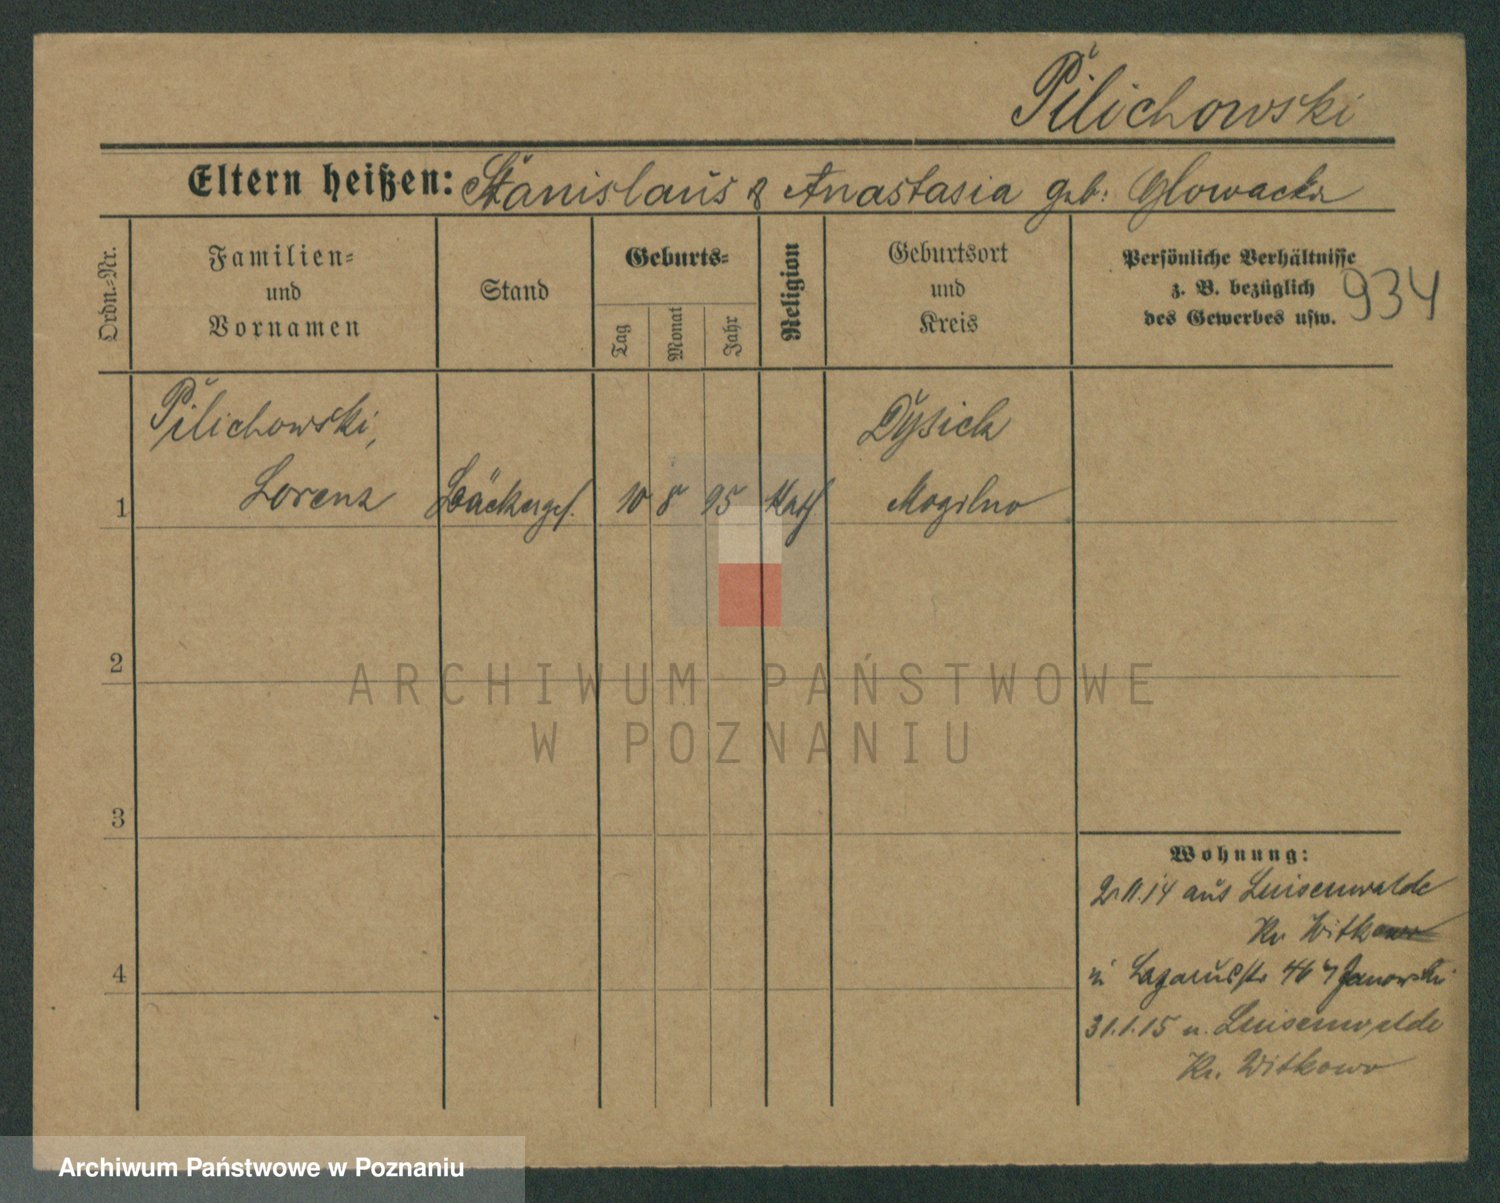 Pilichowski
Eltern heißen: Stanislaus & Anastasia geb. Glowacka
Ordn.-Nr.
Familien-
und
Vornamen
Stand
Geburts-
Tag
Monat
Jahr
Religion
Geburtsort
und
Kreis
Persönliche Verhältnisse
z. B. bezüglich
des Gewerbes usw.
934
Pilichowski,
Lorenz
Bäckerges.
10 8 95
Kath
Mogilno
1
2
3
4
Wohnung:
2.11.14 aus Luisenwalde
Kr. Witkowo
Lazarusstr 46 Janowski
31.1.15 n. Luisenwalde
Kr. Witkowo
ARCHIWUM PAŃSTWOWE
W POZNANIU
Archiwum Państwowe w Poznaniu